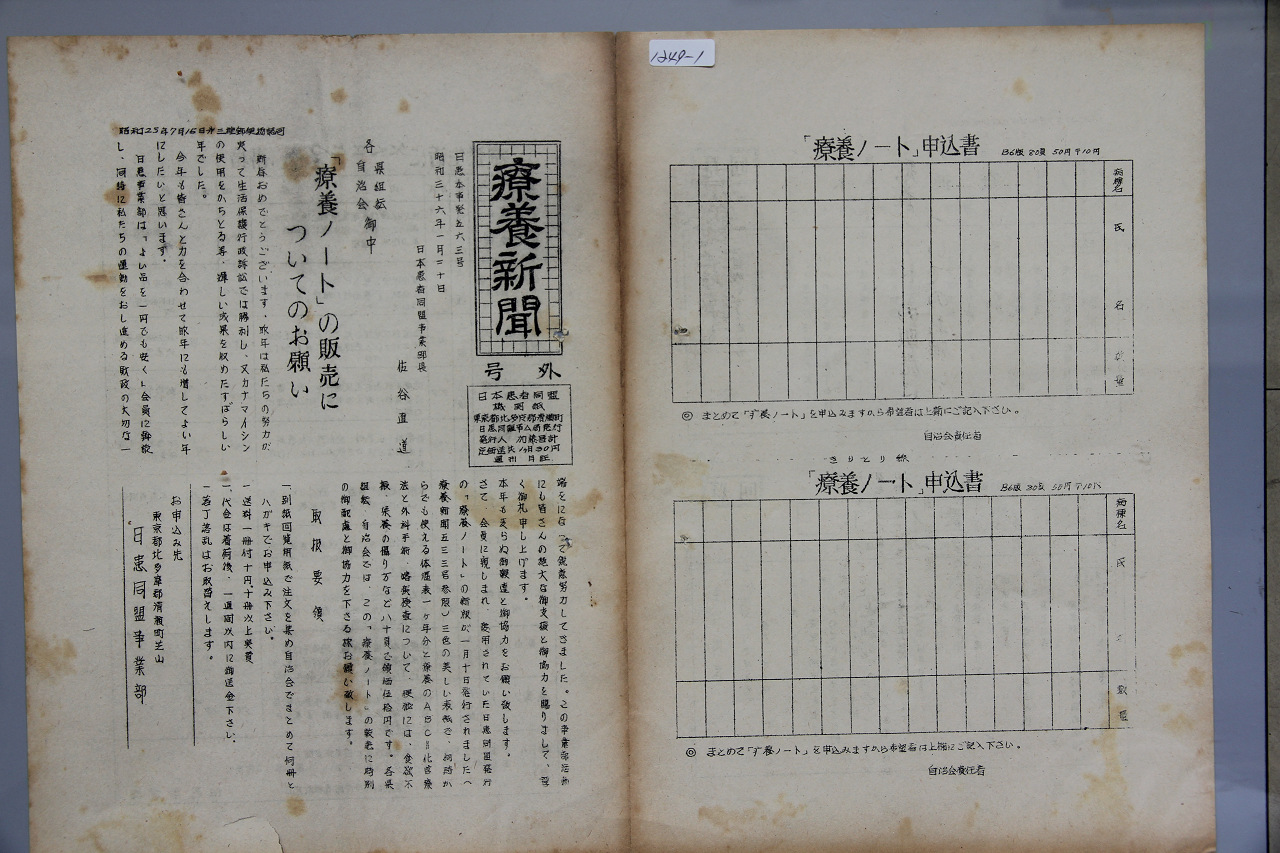 1249-1
昭和25年7月16日第三種郵便物認可
療養新聞
号外
日本患者同盟
機関紙
東京都北多摩郡清瀬町
日患同盟事ム局発行
発行人 加藤啓計
定価送共1ヶ月30円
週刊 月証
日患本事発五六三号
昭和三十六年一月二十日
日本患者同盟事業部長
佐谷直道
各 県組織
自治会 御中
「療養ノート」の販売に
ついてのお願い
新春おめでとうございます、昨年は私たちの努力が
実って生活保護行政訴訟では勝利し、又カナマイシン
の使用をかちとる等、輝しい成果を収めたすばらしい
年でした。
今年も皆さんと力を合わせて昨年にも増してよい年
にしたいと思います。
日患事業部は「よい品を一円でも安く」会員に御役
し、同時に私たちの運動をおし進める財政の大切な一
端をになって鋭意努力してきました。この事業部活動
にも皆さんの絶大な御支援と御協力を賜りまして、厚
く御礼申し上げます。
本年も変らぬ御鞭達と御協力をお願い致します。
さて、会員に親しまれ、使用されていた日患同盟発行
の「療養ノート」の新版が一月十日発行されました(
療養新聞五三三号参照)三色の美しい表紙で、何時か
らでも使える体温表一ヶ年分と療養のABC=化学療
法と外科手術、略痰検査について、便秘には、食欲不
振、栄養の偏り方など八十頁で価五拾円です。各県
組織、自治会では、この「療養ノート」の販売に特別
の御配慮と御協力を下さる様お願い致します。
取扱要領
一、別紙回覧用紙で注文を集め自治会でまとめて何冊と
ハガキでお申込み下さい。
一、送料一冊付十円十冊以上実費
一、代金は着荷後、一週間以内に御送金下さい。
一、落丁落乱はお取替えします。
お申込み先
東京都北多摩郡清瀬町芝山
日患同盟事業部
「療養ノート」申込書 B6版 80頁 50円 〒10円
病棟名
氏名
数量
◎ まとめて「す養ノート」を申込みますから希望者は上欄にご記入下さい。
自治会責任者
きりとり線
「療養ノート」申込書 B6版 80頁 50円 〒10円
病棟名
氏
数量
◎ まとめて「す養ノート」を申込みますから希望者は上欄にご記入下さい。
自治会責任者